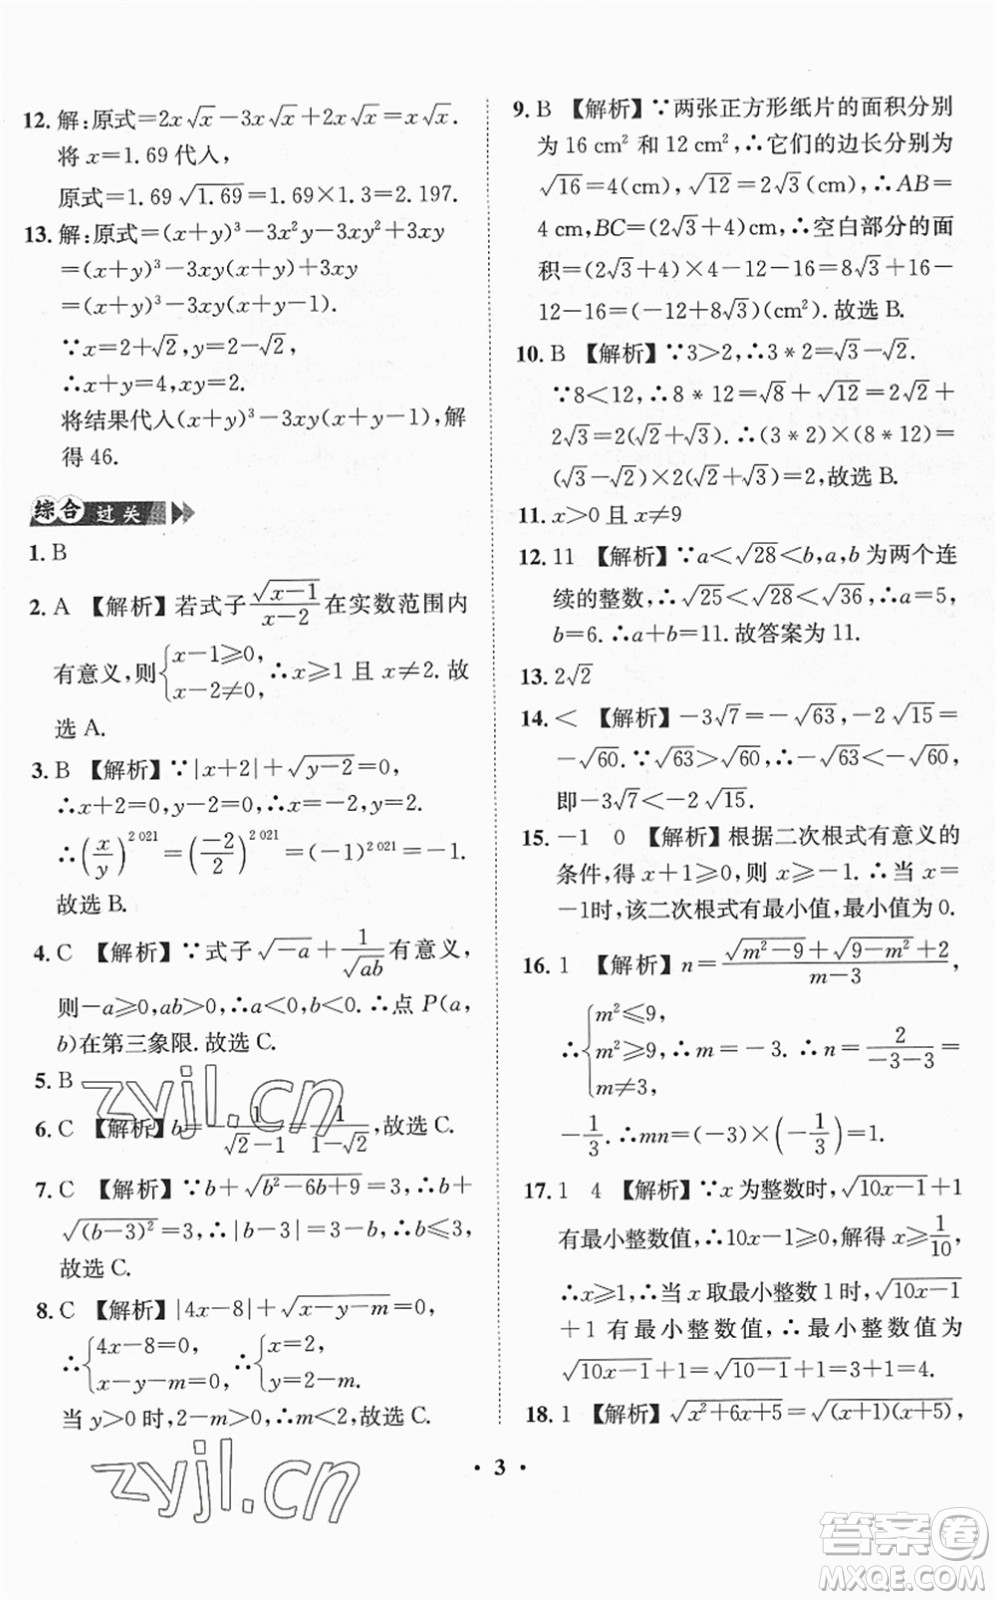 12. 解:原式=2x√x−3x√x+2x√x=x√x.
将 x=1.69代入，
原式=1.69√1.69=1.69×1.3=2.197.
13. 解:原式=(x+y)³−3x²y−3xy²+3xy
=(x+y)³−3xy(x+y)+3xy
=(x+y)³−3xy(x+y−1).
∵x=2+√2,y=2−√2,
∴x+y=4,xy=2.
将结果代入(x+y)³−3xy(x+y−1),解
得 46.
综合过关
1. B
2. A 【解析】若式子√(x−1)/(x−2)在实数范围内
有意义,则{x−1≥0, x−2≠0, ∴x≥1 且 x≠2. 故
选 A.
3. B 【解析】∵|x+2|+√(y−2)=0,
∴x+2=0,y−2=0.∴x=−2,y=2.
∴(x/y)^2 021=(−2/2)^2 021=(−1)^2 021=−1.
故选 B.
4. C 【解析】∵式子√−a+1/√ab有意义,
则−a≥0,ab>0,∴a<0,b<0.∴点 P(a,
b)在第三象限.故选 C.
5. B
6. C 【解析】b=−1/(√2−1)=1/(1−√2),故选 C.
7. C 【解析】∵b+√(b²−6b+9)=3,∴b+
√(b−3)²=3,∴|b−3|=3−b,∴b≤3,
故选 C.
8. C 【解析】|4x−8|+√(x−y−m)=0,
∴{4x−8=0, x−y−m=0, ∴{x=2, y=2−m.
当 y>0 时,2−m>0,∴m<2,故选 C.
9. B 【解析】∵两张正方形纸片的面积分别
为 16 cm² 和 12 cm²,∴它们的边长分别为
√16=4(cm),√12=2√3(cm),∴AB=
4 cm,BC=(2√3+4)cm,∴空白部分的面
积=(2√3+4)×4−12−16=8√3+16−
12−16=(−12+8√3)(cm²).故选 B.
10. B 【解析】∵3>2,∴3*2=√3−√2.
∵8<12,∴8*12=√8+√12=2√2+
2√3=2(√2+√3).∴(3*2)×(8*12)=
(√3−√2)×2(√2+√3)=2,故选 B.
11. x>0 且 x≠9
12. 11 【解析】∵a<√28<b,a,b 为两个连
续的整数,∴√25<√28<√36,∴a=5,
b=6.∴a+b=11.故答案为 11.
13. 2√2
14. < 【解析】−3√7=−√63,−2√15=
−√60.∵√63>√60,∴−√63<−√60,
即−3√7<−2√15.
15. −1 0 【解析】根据二次根式有意义的
条件,得 x+1≥0,则 x≥−1.∴当 x=
−1时,该二次根式有最小值,最小值为 0.
16. 1 【解析】n=(√(m²−9)+√(9−m²)+2)/(m−3),
∴{m²≤9, m²≥9, m≠3, ∴m=−3.∴n=2/(−3−3)=
−1/3.∴mn=(−3)×(−1/3)=1.
17. 1 4 【解析】∵x 为整数时,√(10x−1)+1
有最小整数值,∴10x−1≥0,解得 x≥1/10,
∴x≥1,∴当 x 取最小整数 1 时,√(10x−1)
+1 有最小整数值,∴最小整数值为
√(10x−1)+1=√(10−1)+1=3+1=4.
18. 1 【解析】√(x²+6x+5)=√((x+1)(x+5)),
• 3 •
zyjl.cn
zyjl.cn
答案圈
MXQE.COM